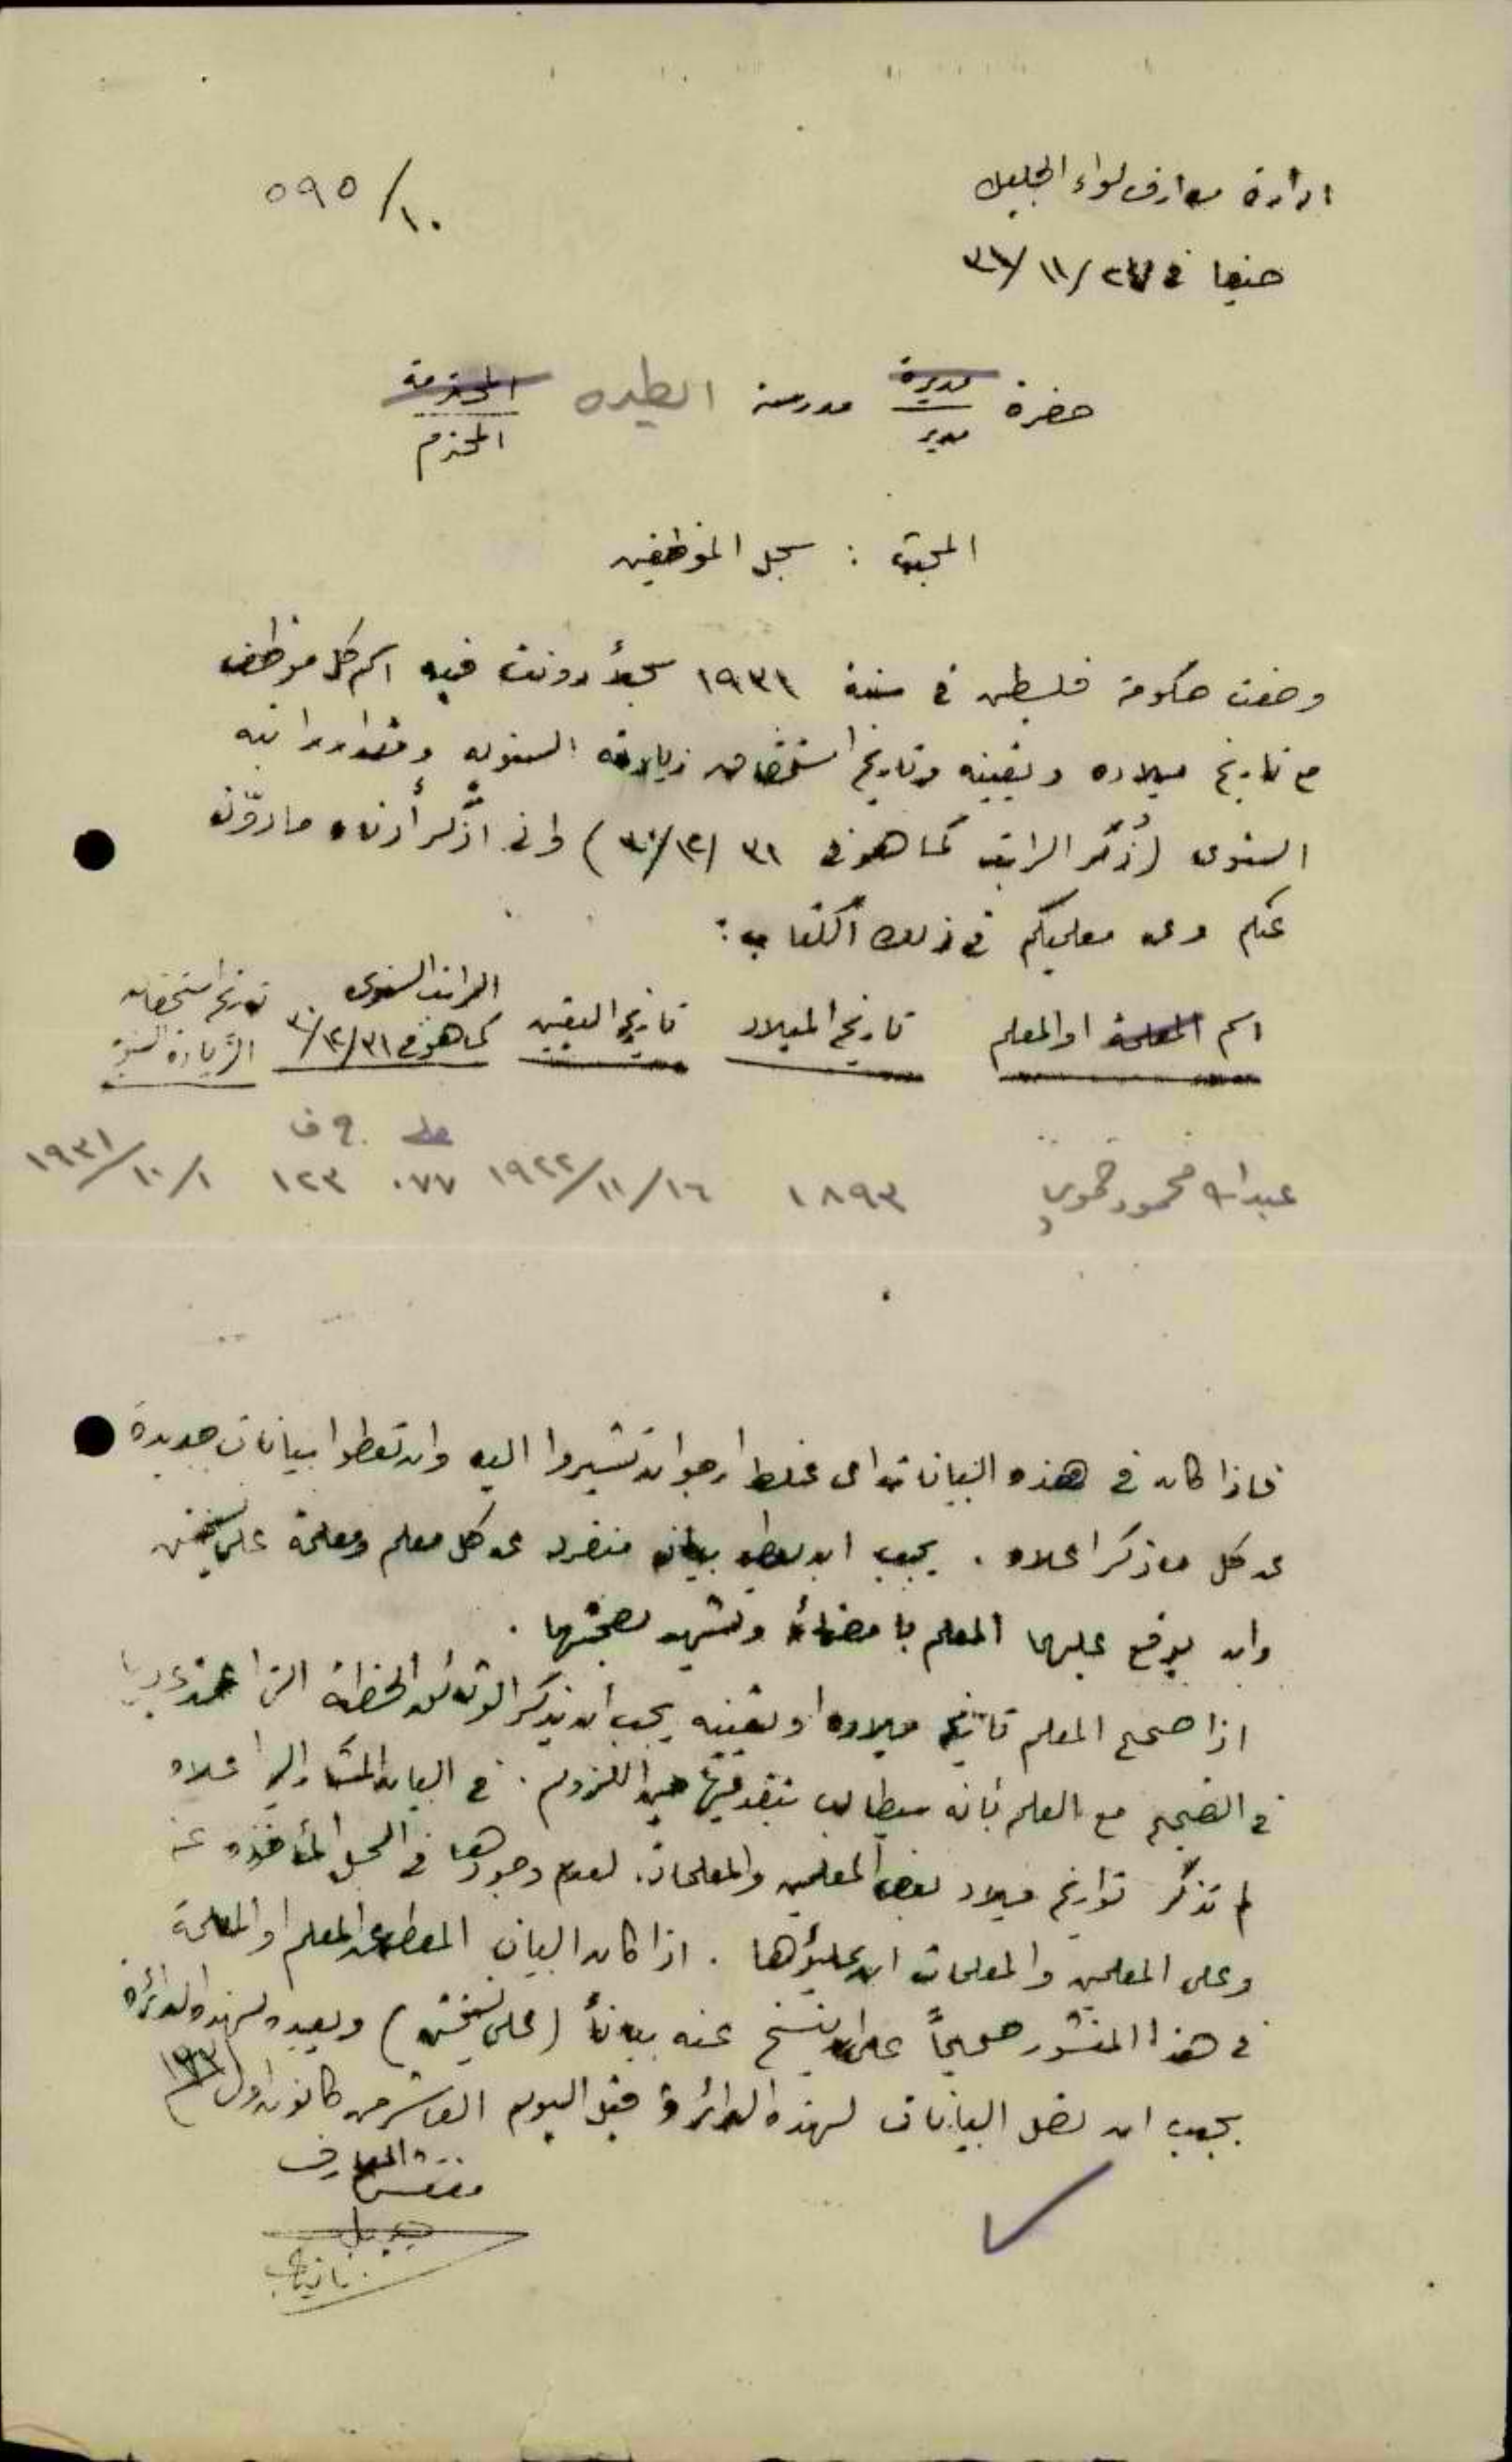 ادارة معارف لواء الجليل
٥٩٥/١٠
حيفا في ٢٧/١١/٣١
حضرة مديرة مدرسة الطيره المحترمة
مدير المحترم
المبحث : سجل الموظفين
وضعت حكومة فلسطين في سنة ١٩٣١ سجلاً دونت فيه اسم كل موظف
مع تاريخ ميلاده وتعيينه وتاريخ استحقاق زيادته السنويه ومقدار راتبه
السنوى (ذُكر الراتب كما هو في ٣١/١٢/٣٠) وانى اذكر أدناه ما دوّن
عنكم وعن معلميكم في ذلك الكتاب :
اسم المعلمة او المعلم
تاريخ الميلاد
تاريخ التعيين
الراتب السنوى
كما هو في ٣١/١٢/٣٠
تاريخ استحقاق
الزيادة السنوية
ج ف
عبدالله محمود ١٨٩٣ ١٩٢٢/١١/١٦ ٠٧٧ ١٢٣ ١٩٣١/١٠/١
فاذا كان في هذه البيانات اى غلط ارجو ان تشيروا اليه وان تعطوا بيانات جديدة
عن كل ما ذكر اعلاه . يجب ان يعطى بيان منفرد عن كل معلم ومعلمة على نسختين
وان يوقع عليها المعلم بامضائه وتشهد بصحتها .
اذا صحح المعلم تاريخ ميلاده او تعيينه يجب أن يذكر الوثائق الخطية التى اعتمد عليها
في التصحيح مع العلم بأنه سيطالب بتقديمها حين اللزوم . في البيان المشار اليه اعلاه
لم تذكر تواريخ ميلاد بعض المعلمين والمعلمات لعدم وجودها في السجل المأخوذه عنه
وعلى المعلمين والمعلمات ان يملؤها . اذا كان البيان المعطى عن المعلم او المعلمة
في هذا المنشور صحيحاً عليه ان ينسخ عنه بياناً (على نسختين) ويعيده لهذه الدائرة
يجب ان تصل البيانات لهذه الدائرة قبل اليوم العاشر من كانون اول ١٩٣١
مفتش المعارف
بالنيابة